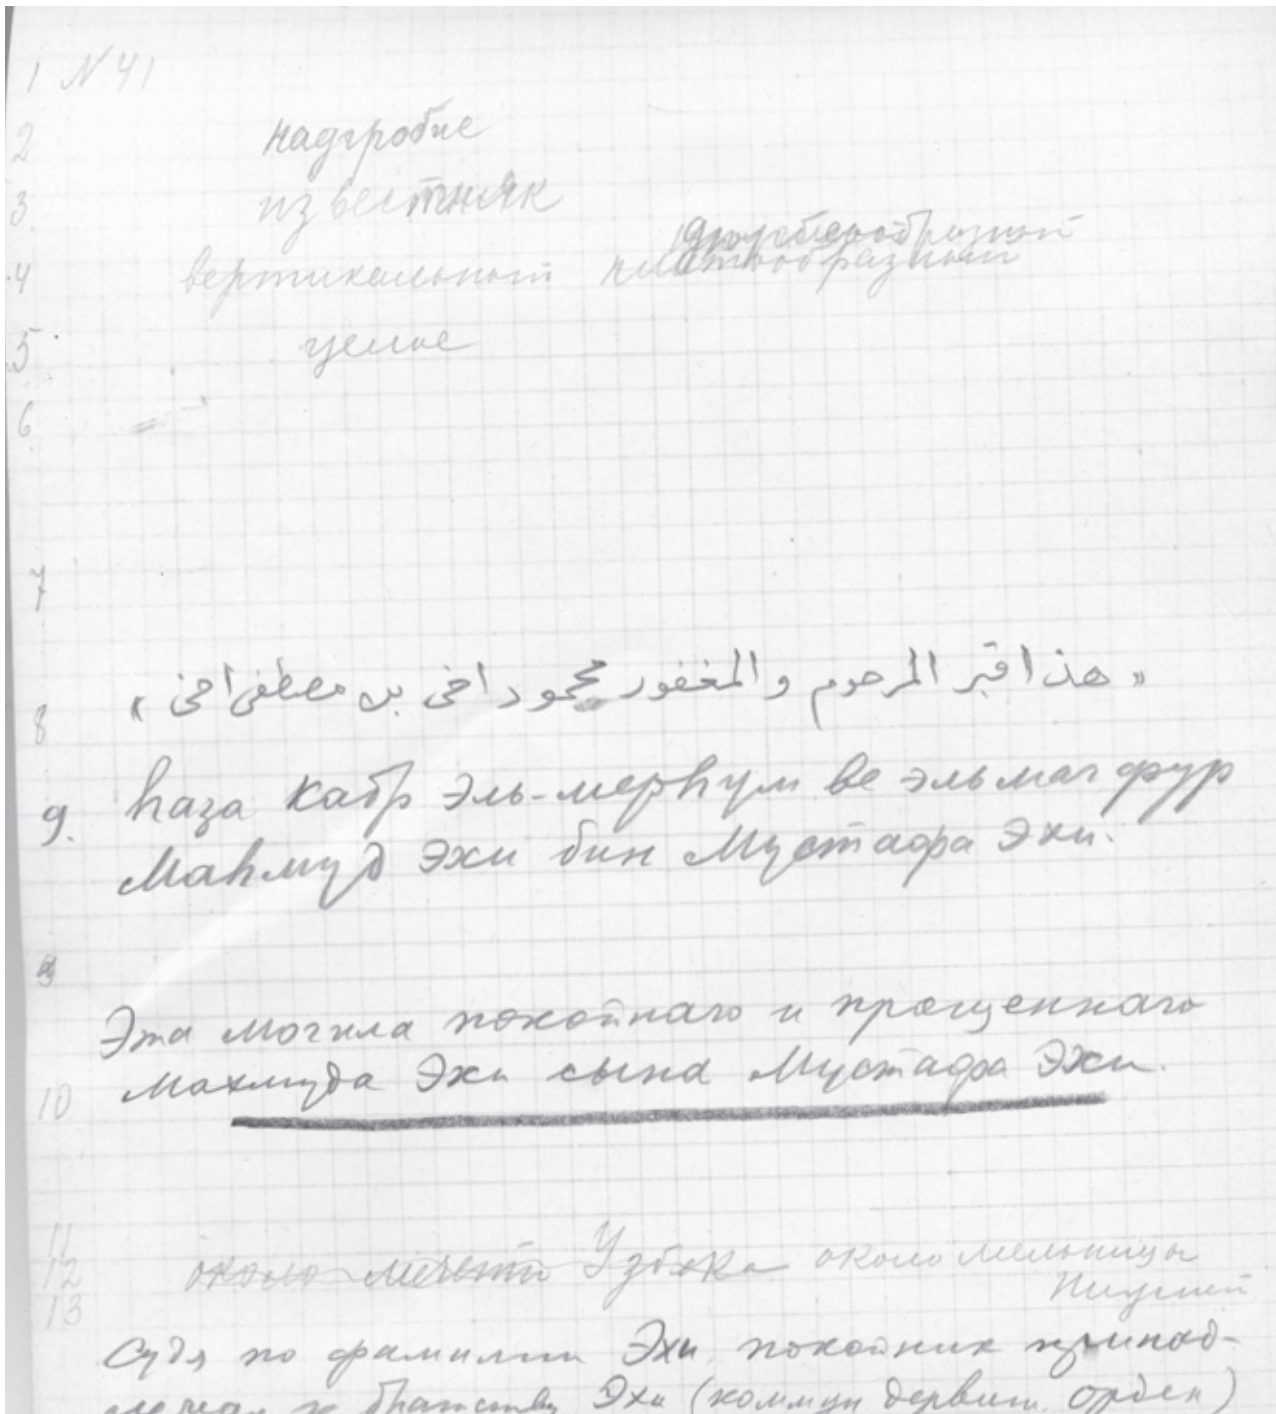 1 N 41
2 надгробие
3 известняк
4 вертикальный
5 целое
6
7
8 « هذا قبر المرحوم والمغفور محمود اخى بن مصطفى اخى »
9. һаза кабр эль-мерһум ве эльмагфур
Маһмуд Эхи бин Мустафа Эхи.
Эта могила покойнаго и прощеннаго
10 Махмуда Эхи сына Мустафа Эхи.
11
12 около мечети Узбека около мельницы
13
Судя по фамилии Эхи покойник принад-
лежал к братству Эхи (коммун дервиш. орден)